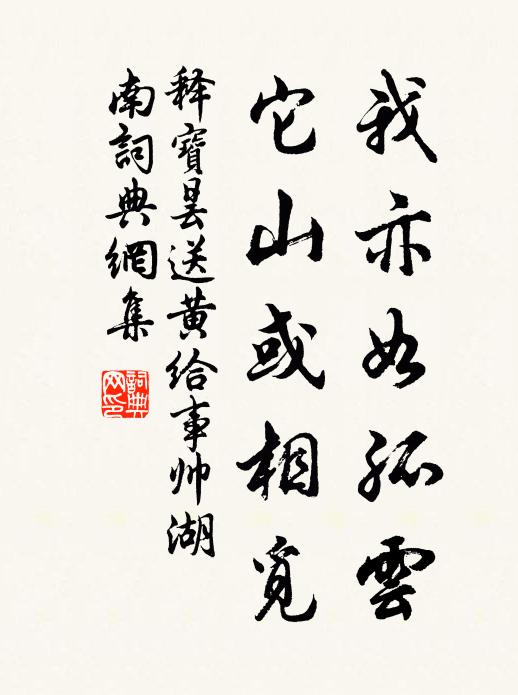 我亦如孤雲
它山或相覓
释寶曇送黄给事帅湖
南詞典網集
詞典网印